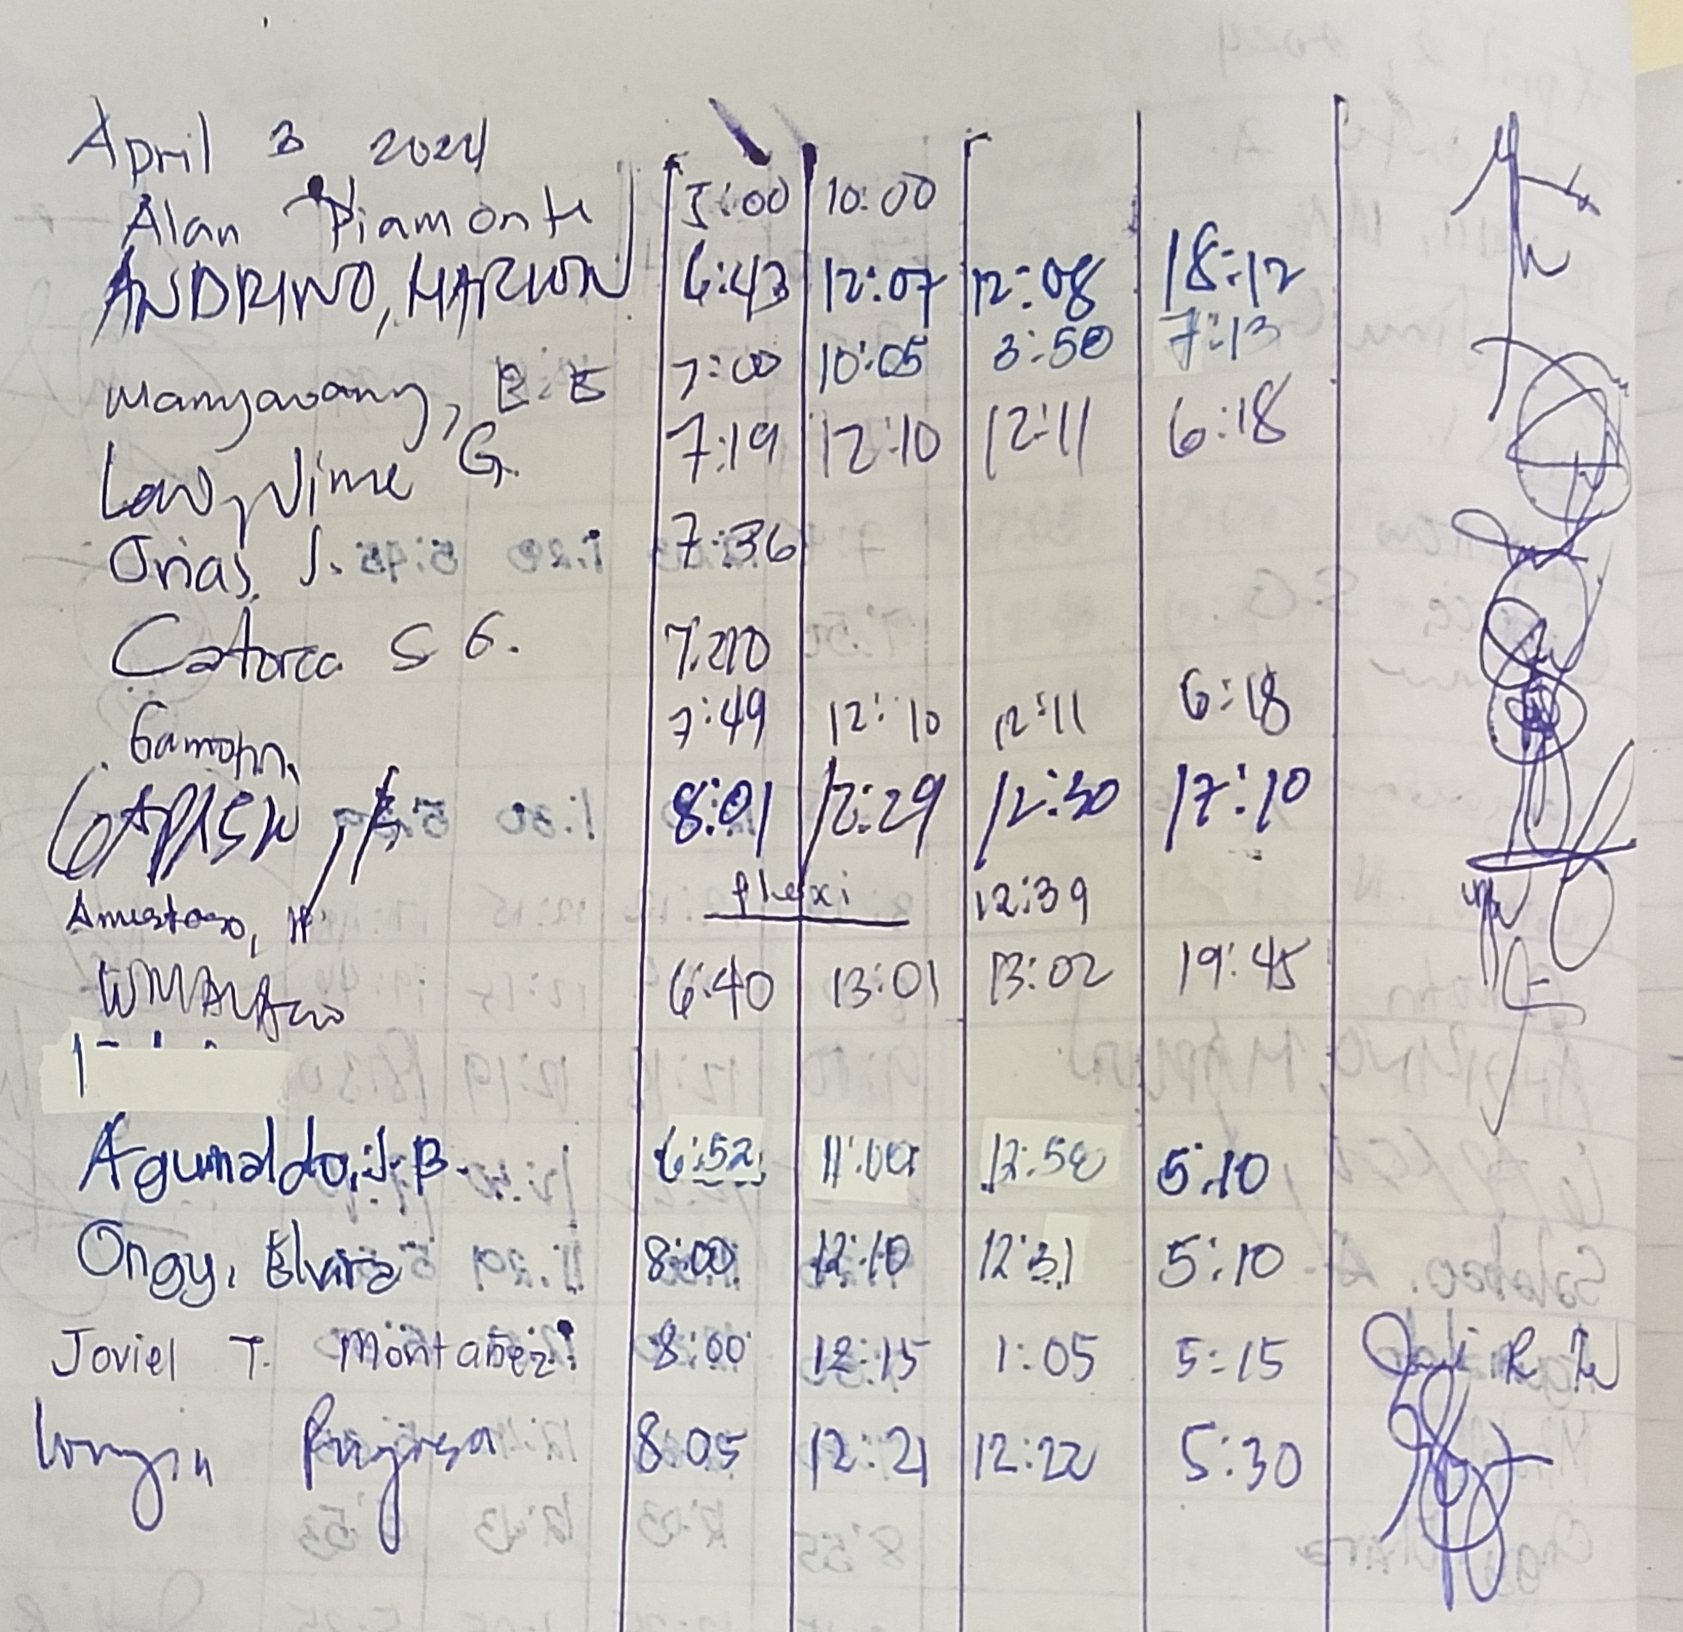 April 3 2024
Alan Piamonte 5:00 10:00
ANDRINO, MARLON 6:43 12:07 12:08 18:12
Mangavang, E. E 7:00 10:05 3:50 7:13
Law, Jime G. 7:19 12:10 12:11 6:18
Orias, J. 7:36
Catorce S G. 7:20
Gamotin 7:49 12:10 12:11 6:18
8:01 12:29 12:30 17:10
Amestoso, H flexi 12:39
6:40 13:01 13:02 19:45
Aguinaldo, J. B. 6:52 11:00 12:50 5:10
Ongy, Elvira 8:00 12:10 12:31 5:10
Joviel T. Montañez 8:00 12:15 1:05 5:15
8:05 12:21 12:22 5:30